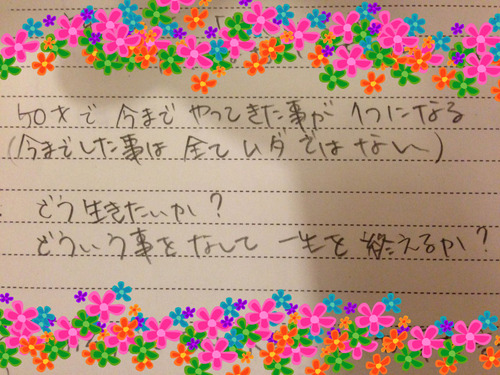 40才で今までやってきた事が1つになる
(今までした事は全てムダではない)
どう生きたいか?
どういう事をなして一生を終えるか?